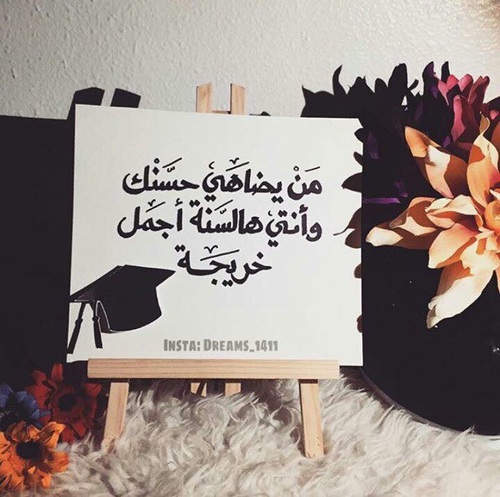 مَنْ يضاهي حسَّنْك
وأنتي هالسَّنة أجمَل
خريجَة
INSTA: DREAMS_1411